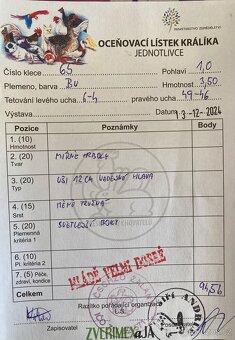 MINISTERSTVO ZEMĚDĚLSTVÍ
OCEŇOVACÍ LÍSTEK KRÁLÍKA
JEDNOTLIVCE
Číslo klece 65 Pohlaví 1,0
Plemeno, barva Bu Hmotnost 3,50
Tetování levého ucha 4-4 pravého ucha 49-46
Výstava Datum 13-12-2024
Pozice Poznámky Body
1. (10)
Hmotnost
2. (20)
Tvar
MÍRNĚ HRANATÁ
3. (20)
Typ
UŠI 12 CM HLAVA
4. (15)
Srst
MÉNĚ PRUŽNÁ
5. (20)
Plemenná
kritéria 1
SVĚTLEJŠÍ BOKY
6. (10)
Pl. kritéria 2
7. (5) Péče,
zdraví, kondice
MLÁDĚ VELMI DOBRÉ
Celkem
Razítko pořádající organizace
Zapisovatel
ZVERIMEX aJA